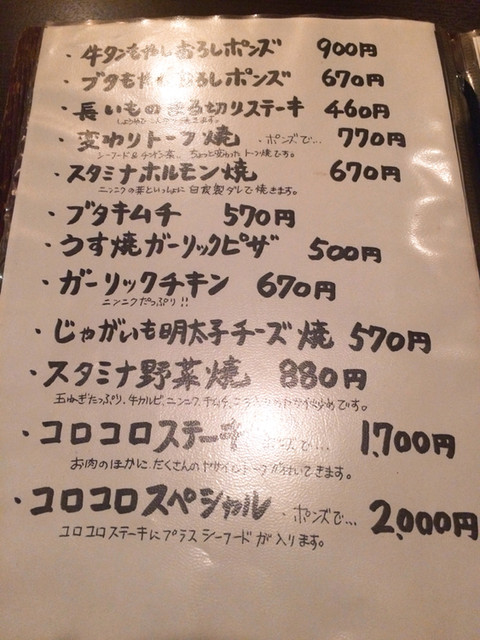 ・牛タンもやしおろしポンズ 900円
・ブタもやしおろしポンズ 670円
・長いもの まる切りステーキ 460円
しょうゆで きます。
・変わりトーフ焼 ・ポンズで… 770円
シーフード& ちょっと変わった トーフ焼です。
・スタミナホルモン焼 670円
ニンニクの芽といっしょに 自家製ダレで焼きます。
・ブタキムチ 570円
・うす焼ガーリックピザ 500円
・ガーリックチキン 670円
ニンニクたっぷり!!
・じゃがいも明太子チーズ焼 570円
・スタミナ野菜焼 880円
玉ねぎたっぷり、牛カルビ、ニンニク、キムチ、 炒めです。
・コロコロステーキ ポンズで… 1,700円
お肉のほかに、たくさんのヤサイ きます。
・コロコロスペシャル ・ポンズで… 2,000円
コロコロステーキにプラス シーフードが入ります。